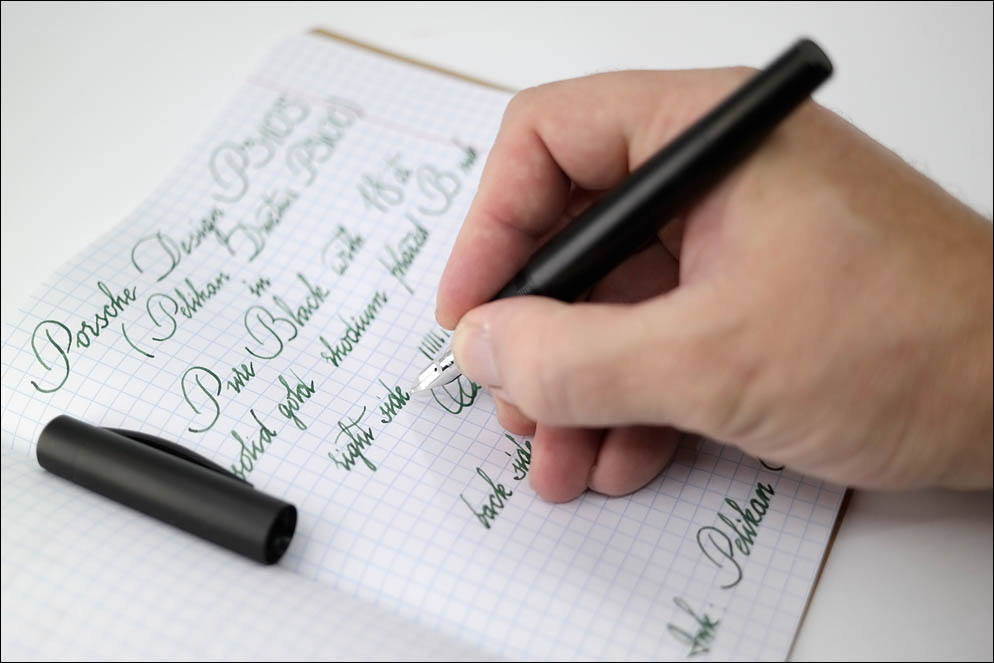 Porsche Design P3105
(Pelikan Ductus P3100)
in
Pure Black with 18 ct
solid gold rhodium plated B nib
right side
back side
Ink: Pelikan